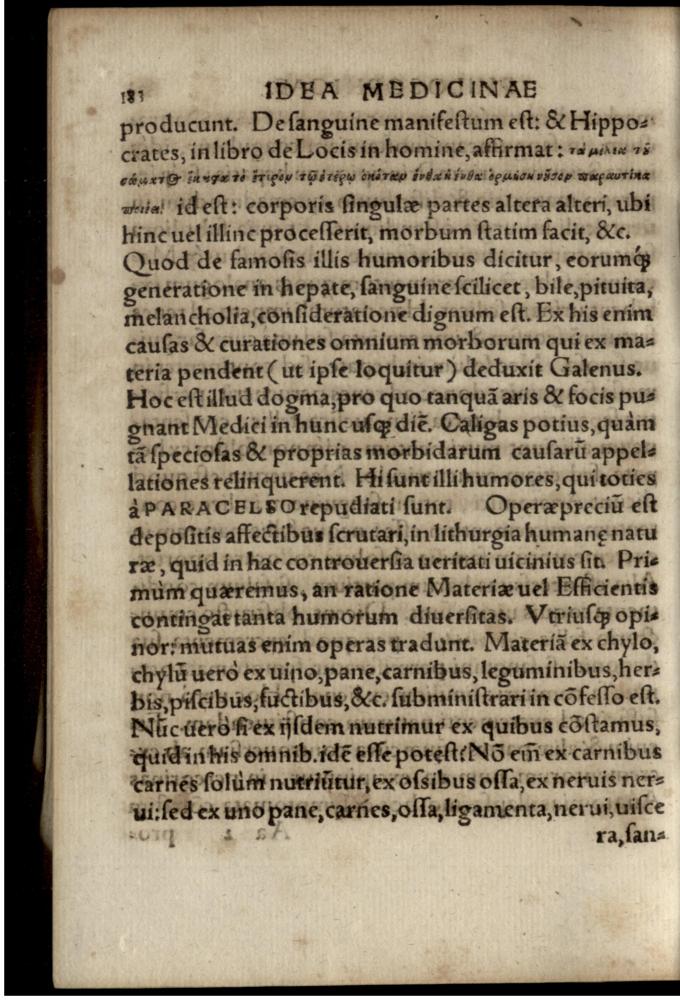 183 IDEA MEDICINAE
producunt. De sanguine manifestum est: & Hippo-
crates, in libro de Locis in homine, affirmat: τὰ μέλεα τῦ
σώματ۞ ἕκαστα τὸ ἕτερον τῷ ἑτέρῳ ὁπόταν ἔνθα ἢ ἔνθα ὁρμήσῃ νῦσον παραυτίκα
ποιέει. id est: corporis singulæ partes altera alteri, ubi
hinc uel illinc processerit, morbum statim facit, &c.
Quod de famosis illis humoribus dicitur, eorumq́ꝫ
generatione in hepate, sanguine scilicet, bile, pituita,
melancholia, consideratione dignum est. Ex his enim
causas & curationes omnium morborum qui ex ma-
teria pendent (ut ipse loquitur) deduxit Galenus.
Hoc est illud dogma, pro quo tanquã aris & focis pu-
gnant Medici in hunc usqꝫ diẽ. Caligas potius, quàm
tã speciosas & proprias morbidarum causarũ appel-
lationes relinquerent. Hi sunt illi humores, qui toties
à PARACELSO repudiati sunt. Operæpreciũ est
depositis affectibus scrutari, in lithurgia humanę natu
ræ, quid in hac controuersia ueritati uicinius sit. Pri-
mùm quæremus, an ratione Materiæ uel Efficientis
contingat tanta humorum diuersitas. Vtriusqꝫ opi-
nor: mutuas enim operas tradunt. Materiã ex chylo,
chylũ uerò ex uino, pane, carnibus, leguminibus, her-
bis, piscibus, fuctibus, &c. subministrari in cõfesso est.
Nũc uerò si ex ijsdem nutrimur ex quibus cõstamus,
quid in his omnib. idẽ esse potest? Nõ em̃ ex carnibus
carnes solùm nutriũtur, ex ossibus ossa, ex neruis ner-
ui: sed ex uno pane, carnes, ossa, ligamenta, nerui, uisce
ra, san-